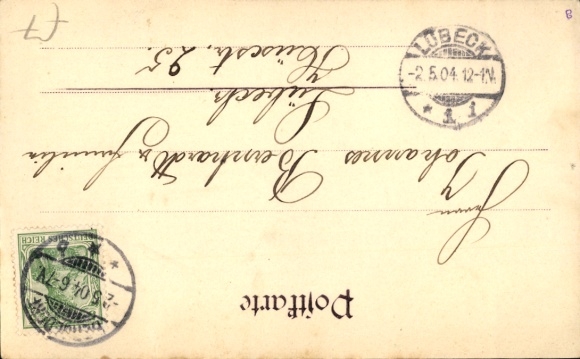 Postkarte
Herrn
Johannes Bernhardt u. Familie
Lübeck.
Hüxstr. 25.
DEUTSCHES REICH
LÜBECK
-2.5.04.12-1N.
* 1 i
-2.5.04.6-7N.
£7
8